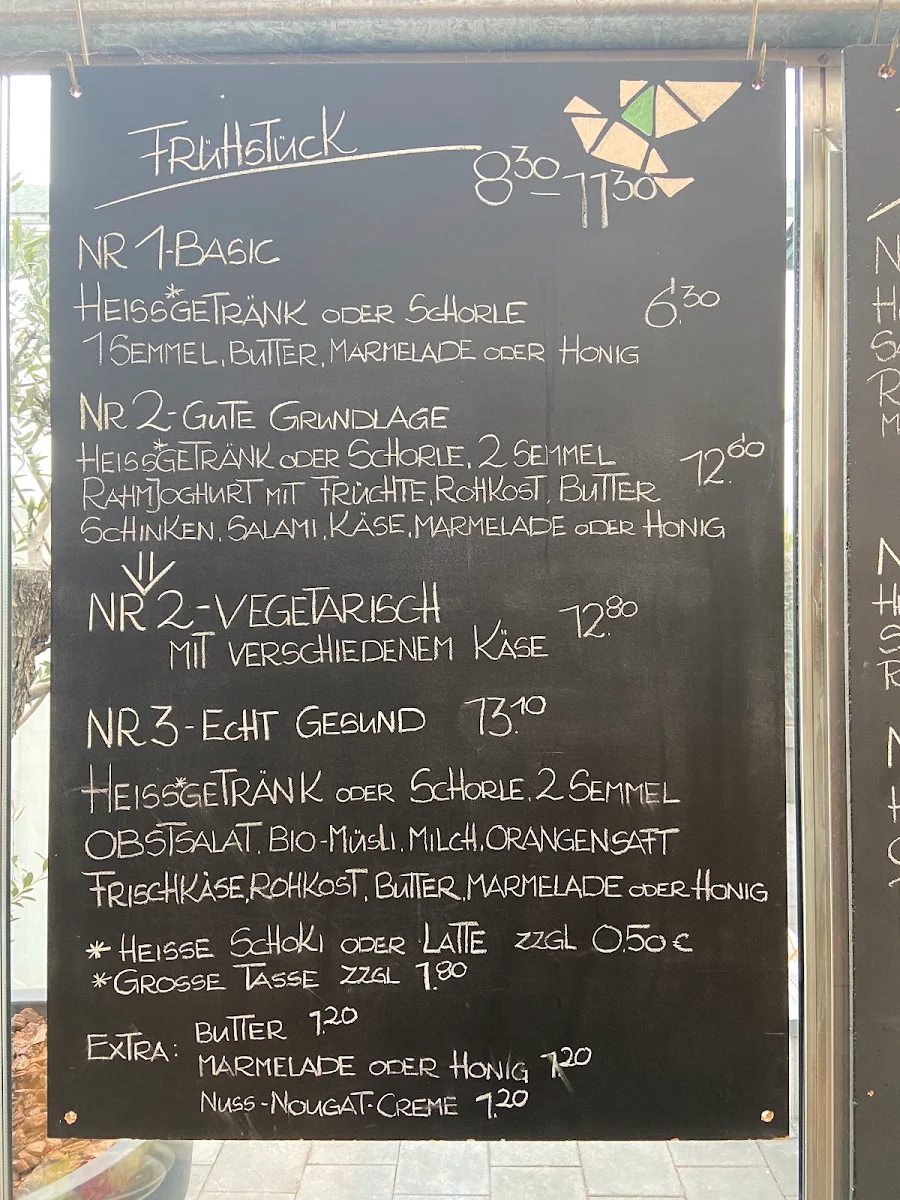 FRÜHSTÜCK
8³⁰ – 11³⁰
NR 1-BASIC
HEISS*GETRÄNK ODER SCHORLE 6.³⁰
1 SEMMEL, BUTTER, MARMELADE ODER HONIG
NR 2-GUTE GRUNDLAGE
HEISS*GETRÄNK ODER SCHORLE, 2 SEMMEL 12.⁶⁰
RAHMJOGHURT MIT FRÜCHTE, ROHKOST, BUTTER
SCHINKEN, SALAMI, KÄSE, MARMELADE ODER HONIG
NR 2-VEGETARISCH 12.⁸⁰
MIT VERSCHIEDENEM KÄSE
NR 3-ECHT GESUND 13.¹⁰
HEISS*GETRÄNK ODER SCHORLE, 2 SEMMEL
OBSTSALAT, BIO-MÜSLI, MILCH, ORANGENSAFT
FRISCHKÄSE, ROHKOST, BUTTER, MARMELADE ODER HONIG
* HEISSE SCHOKI ODER LATTE ZZGL 0,50 €
* GROSSE TASSE ZZGL 1.⁸⁰
EXTRA: BUTTER 1.²⁰
MARMELADE ODER HONIG 1.²⁰
NUSS-NOUGAT-CREME 1.²⁰